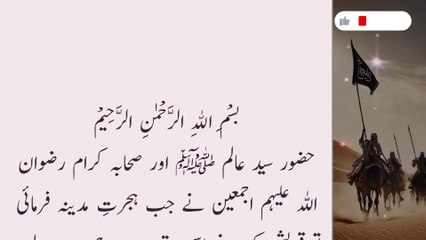 بِسْمِ اللهِ الرَّحْمٰنِ الرَّحِيْمِ
حضور سید عالم ﷺ اور صحابہ کرام رضوان
اللہ علیہم اجمعین نے جب ہجرتِ مدینہ فرمائی